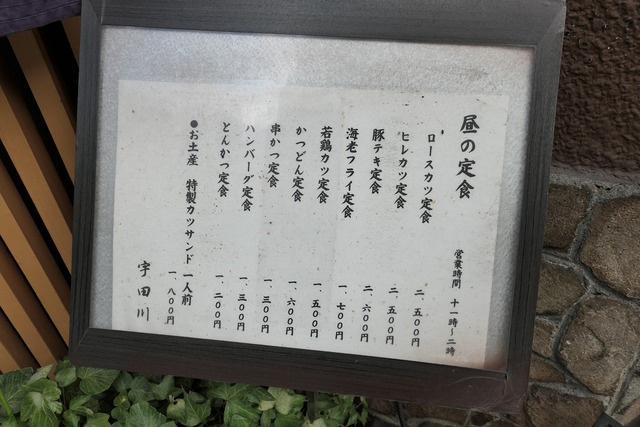 昼の定食
営業時間 十一時〜二時
ロースカツ定食 二、五〇〇円
ヒレカツ定食 二、五〇〇円
豚テキ定食 二、六〇〇円
海老フライ定食 一、七〇〇円
若鶏カツ定食 一、五〇〇円
かつどん定食 一、六〇〇円
串かつ定食 一、三〇〇円
ハンバーグ定食 一、三〇〇円
とんかつ定食 一、二〇〇円
●お土産 特製カツサンド 一人前
一、八〇〇円
宇田川